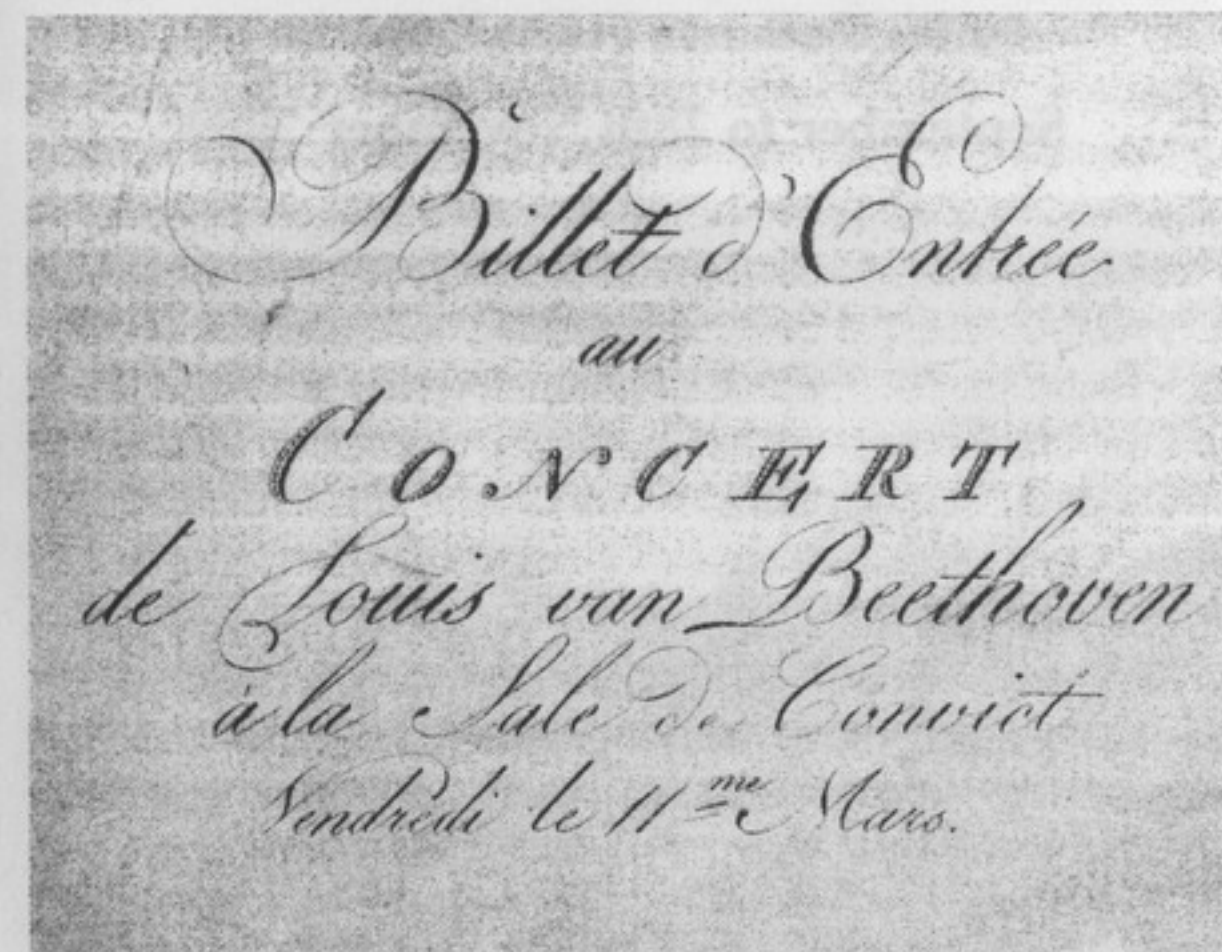 Billet d'Entrée
au
CONCERT
de Louis van Beethoven
à la Sale de Convict
Vendredi le 11me Mars.